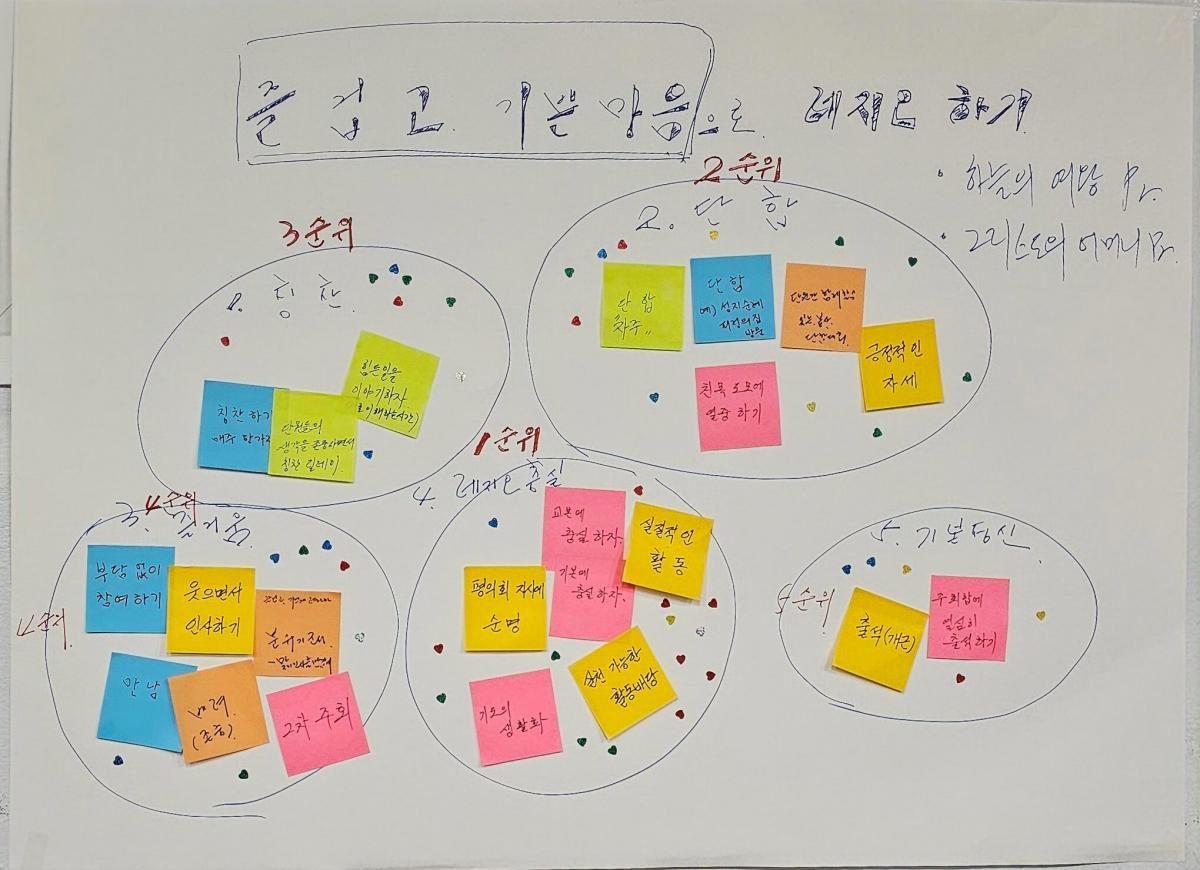 즐겁고 기쁜 마음으로 레지오 하기
· 하늘의 여왕 Pr.
· 그리스도의 어머니 Pr.
3순위
1. 칭찬
칭찬 하기
매주 한가지
단원들의
생각을 존중하면서
칭찬 릴레이.
힘든일을
이야기하자
2순위
2. 단합
단합
차주,,
단합
예) 성지순례
피정의집
방문
단원간 함께하는
단합대회.
긍정적인
자세
친목 도모에
열중 하기
4순위
3. 즐거움
4순위
부담 없이
참여하기
웃으면서
인사하기
분위기 조성
만남
배려.
(존중).
2차 주회
1순위
4. 레지오 충실
교본에
충실 하자.
기본에
충실하자.
실질적인
활동
평의회 지시에
순명
실천 가능한
활동배당
기도의
생활화
5. 기본정신
5순위
출석(개근)
주회합에
열심히
출석하기